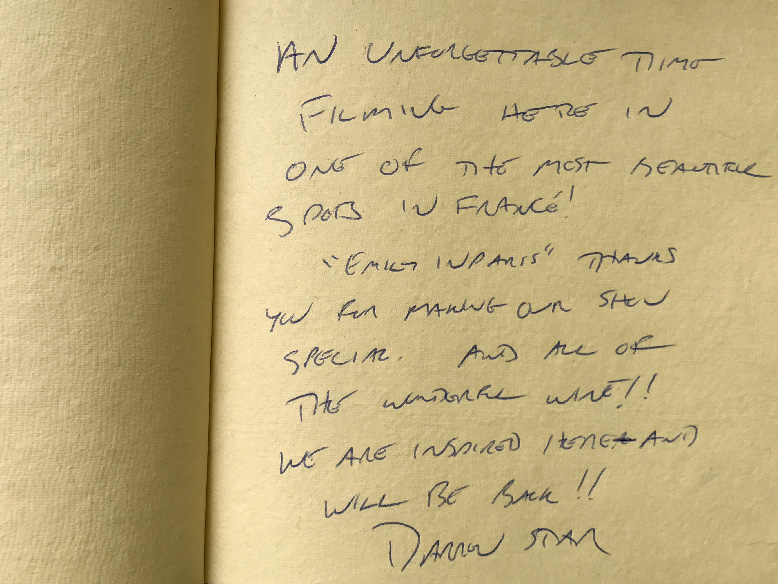 AN UNFORGETTABLE TIME
FILMING HERE IN
ONE OF THE MOST BEAUTIFUL
SPOTS IN FRANCE!
"EMILY IN PARIS" THANKS
YOU FOR MAKING OUR SHOW
SPECIAL. AND ALL OF
THE WONDERFUL WINE!!
WE ARE INSPIRED HERE AND
WILL BE BACK!!
DARREN STAR